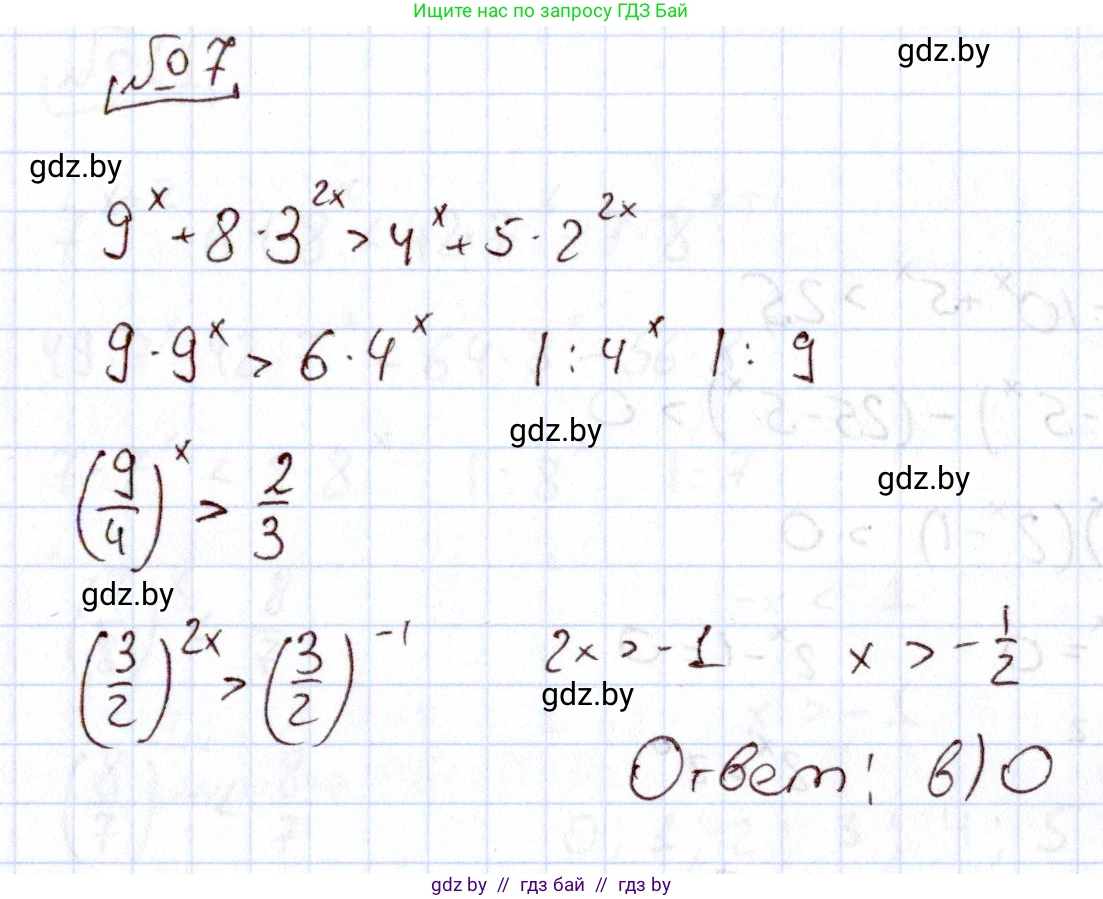 Ищите нас по запросу ГДЗ Бай
№ 7
gdz.by
gdz.by
9^x + 8 · 3^{2x} > 4^x + 5 · 2^{2x}
9 · 9^x > 6 · 4^x |: 4^x |: 9
gdz.by
(9/4)^x > 2/3
gdz.by
gdz.by
(3/2)^{2x} > (3/2)^{-1} 2x > -1 x > -1/2
gdz.by
Ответ: в) 0
gdz by // гдз бай // гдз by